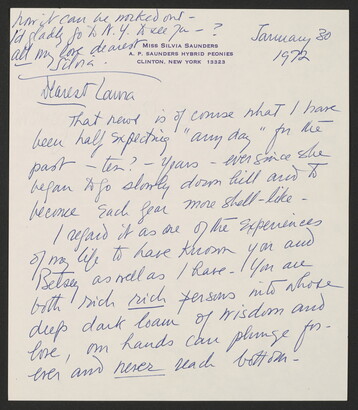 how it can be worked out -
I'd gladly go to N.Y. to see you - ?
all my love dearest
Silvia.
MISS SILVIA SAUNDERS
A. P. SAUNDERS HYBRID PEONIES
CLINTON, NEW YORK 13323
January 30
1972
Dearest Laura
That news is of course what I have
been half expecting "any day" for the
past - ten? - years - ever since she
began to go slowly down hill and to
become each year more shell-like -
I regard it as one of the experiences
of my life to have known you and
Betsey as well as I have - You are
both rich rich persons into whose
deep dark loam of wisdom and
love, our hands can plunge for-
ever and never reach bottom -